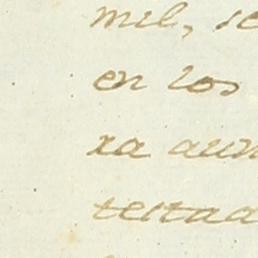 mil, se
en los
xa aun
teitad